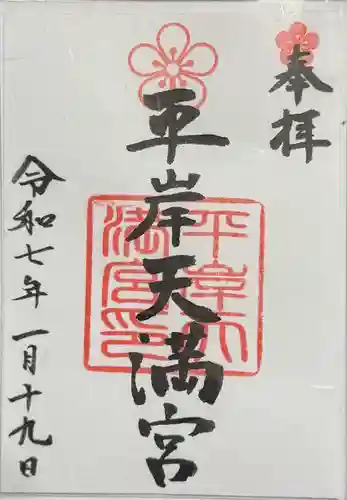 奉拝
平岸天満宮
平岸天満宮印
令和七年一月十九日